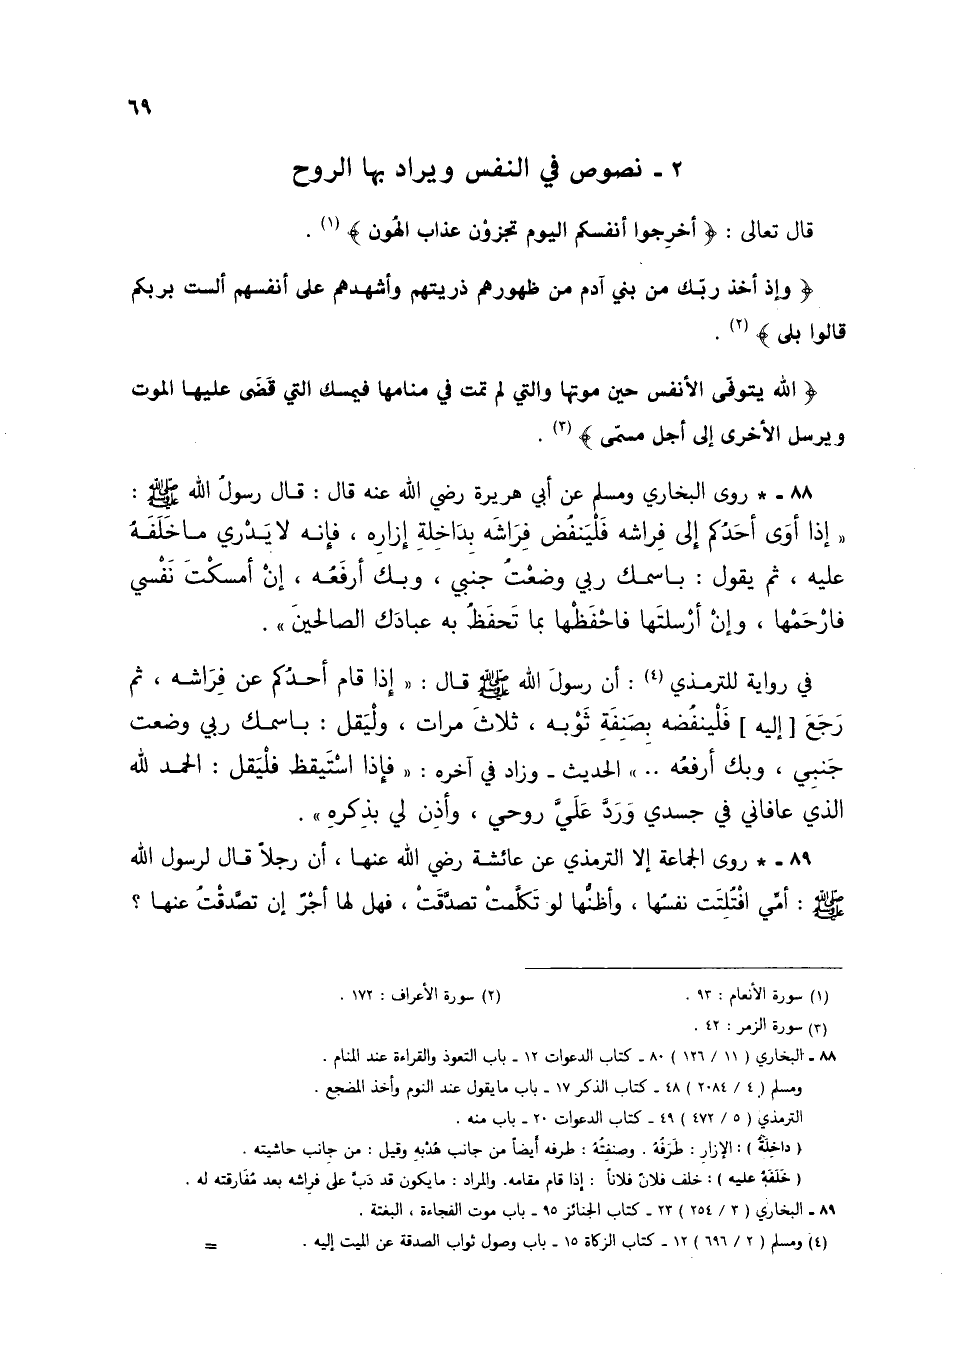 ٦٩
٢ ـ نصوص في النفس ويراد بها الروح
قال تعالى : ﴿ أخرِجوا أنفسكم اليوم تجزوْن عذاب الهُون ﴾ (١) .
﴿ وإذ أخذ ربّك من بني آدم من ظهورهم ذريتهم وأشهدهم على أنفسهم ألست بربكم
قالوا بلى ﴾ (٢) .
﴿ الله يتوفّى الأنفس حين موتها والتي لم تمت في منامها فيمسك التي قَضَى عليها الموت
ويرسل الأخرى إلى أجل مسمّى ﴾ (٣) .
٨٨ ـ * روى البخاري ومسلم عن أبي هريرة رضي الله عنه قال : قال رسولُ الله ﷺ :
« إذا أوَى أحَدُكم إلى فراشه فَلْيَنفُض فِرَاشَه بدَاخلةِ إزاره ، فإنه لا يَدْري ما خَلَفَهُ
عليه ، ثم يقول : باسمك ربي وضعْتُ جنبي ، وبك أرفَعُه ، إنْ أمسكْتَ نَفْسي
فارْحَمْها ، وإنْ أرْسلتَها فاحْفَظْها بما تَحفَظُ به عبادَك الصالحينَ » .
في رواية للترمذي (٤) : أن رسولَ الله ﷺ قال : « إذا قام أحدُكم عن فِرَاشه ، ثم
رَجَعَ [ إليه ] فَلْينفُضه بصَنِفَةِ ثَوْبه ، ثلاثَ مرات ، ولْيَقل : باسمك ربي وضعت
جَنبِي ، وبك أرفعُه .. » الحديث ـ وزاد في آخره : « فإذا اسْتَيقظ فلْيَقل : الحمد لله
الذي عافاني في جسدي وَرَدَّ عَلَيَّ روحي ، وأذِن لي بذِكره » .
٨٩ ـ * روى الجماعة إلا الترمذي عن عائشة رضي الله عنها ، أن رجلاً قال لرسول الله
ﷺ : أمّي افْتُلِتَت نفسُها ، وأظنُّها لو تَكلَّمتْ تصدَّقَتْ ، فهل لها أجْرٌ إن تصَّدقْتُ عنها ؟
(١) سورة الأنعام : ٩٣ .
(٢) سورة الأعراف : ١٧٢ .
(٣) سورة الزمر : ٤٢ .
٨٨ ـ البخاري ( ١١ / ١٢٦ ) ٨٠ ـ كتاب الدعوات ١٢ ـ باب التعوذ والقراءة عند المنام .
ومسلم ( ٤ / ٢٠٨٤ ) ٤٨ ـ كتاب الذكر ١٧ ـ باب ما يقول عند النوم وأخذ المضجع .
الترمذي ( ٥ / ٤٧٢ ) ٤٩ ـ كتاب الدعوات ٢٠ ـ باب منه .
( داخِلَةُ ) : الإزار : طَرَفُهُ . وصنفتُهُ : طرفه أيضاً من جانب هُدْبِهِ وقيل : من جانب حاشيته .
( خَلَفَهُ عليه ) : خلف فلانٌ فلاناً : إذا قام مقامه. والمراد : ما يكون قد دَبَّ على فراشه بعد مُفَارقته له .
٨٩ ـ البخاري ( ٣ / ٢٥٤ ) ٢٣ ـ كتاب الجنائز ٩٥ ـ باب موت الفجاءة ، البغتة .
(٤) ومسلم ( ٢ / ٦٩٦ ) ١٢ ـ كتاب الزكاة ١٥ ـ باب وصول ثواب الصدقة عن الميت إليه . =